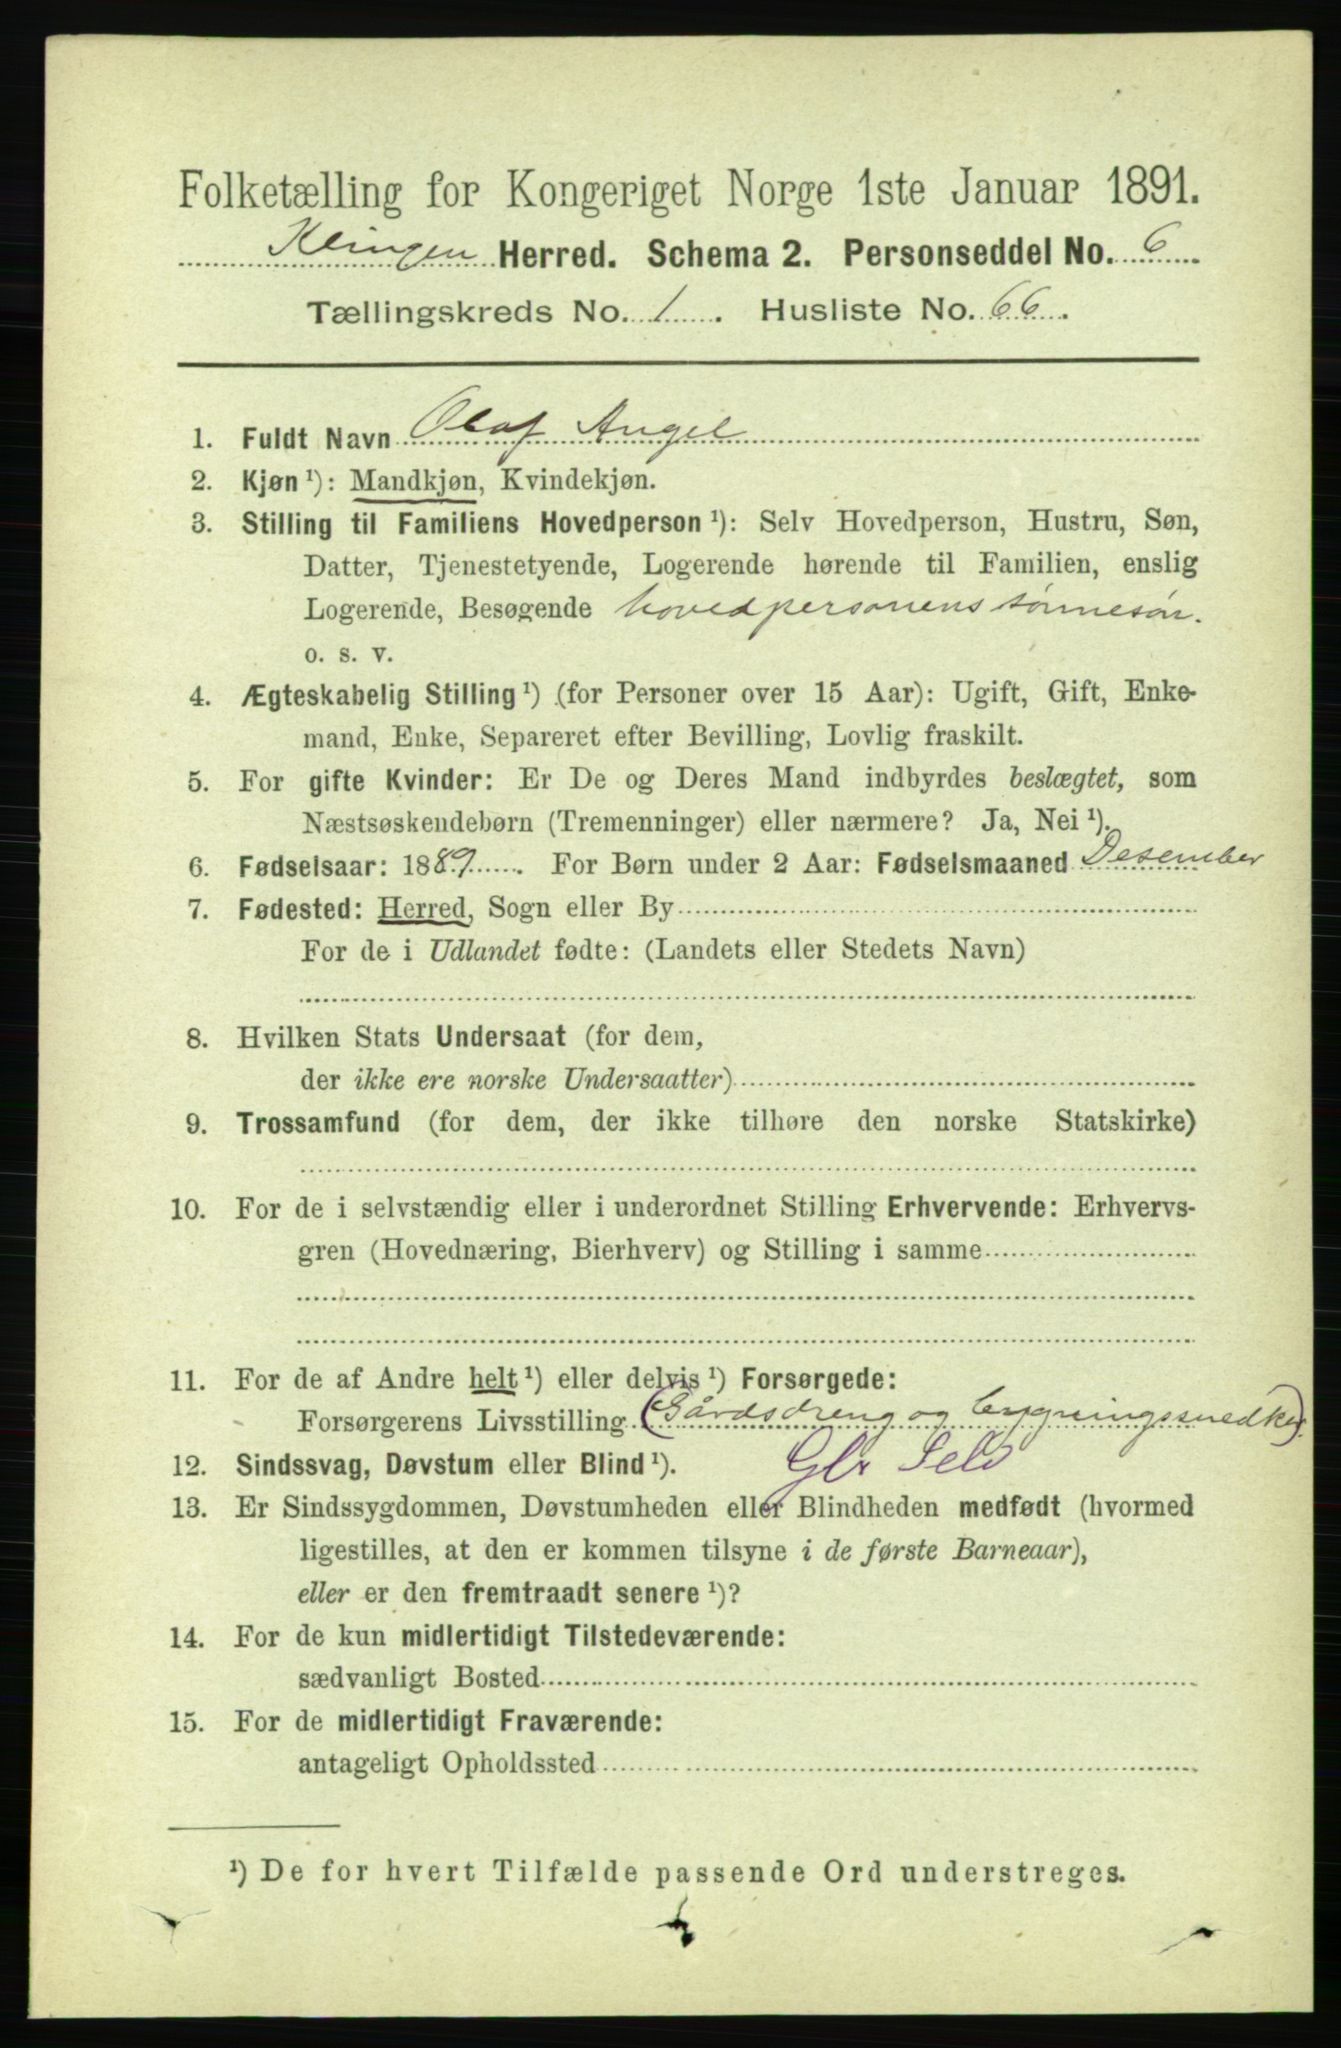 Folketælling for Kongeriget Norge 1ste Januar 1891.
Klingen Herred. Schema 2. Personseddel No. 6
Tællingskreds No. 1. Husliste No. 66.
1. Fuldt Navn Olaf Angel
2. Kjøn ¹): Mandkjøn, Kvindekjøn.
3. Stilling til Familiens Hovedperson ¹): Selv Hovedperson, Hustru, Søn,
Datter, Tjenestetyende, Logerende hørende til Familien, enslig
Logerende, Besøgende hovedpersonens sönnesön.
o. s. v.
4. Ægteskabelig Stilling ¹) (for Personer over 15 Aar): Ugift, Gift, Enke-
mand, Enke, Separeret efter Bevilling, Lovlig fraskilt.
5. For gifte Kvinder: Er De og Deres Mand indbyrdes beslægtet, som
Næstsøskendebørn (Tremenninger) eller nærmere? Ja, Nei ¹).
6. Fødselsaar: 1889. For Børn under 2 Aar: Fødselsmaaned Desember
7. Fødested: Herred, Sogn eller By
For de i Udlandet fødte: (Landets eller Stedets Navn)
8. Hvilken Stats Undersaat (for dem,
der ikke ere norske Undersaatter)
9. Trossamfund (for dem, der ikke tilhøre den norske Statskirke)
10. For de i selvstændig eller i underordnet Stilling Erhvervende: Erhvervs-
gren (Hovednæring, Bierhverv) og Stilling i samme
11. For de af Andre helt ¹) eller delvis ¹) Forsørgede:
Forsørgerens Livsstilling (Gårdsdreng og bygningssnedker).
12. Sindssvag, Døvstum eller Blind ¹). Gbr Selv
13. Er Sindssygdommen, Døvstumheden eller Blindheden medfødt (hvormed
ligestilles, at den er kommen tilsyne i de første Barneaar),
eller er den fremtraadt senere ¹)?
14. For de kun midlertidigt Tilstedeværende:
sædvanligt Bosted
15. For de midlertidigt Fraværende:
antageligt Opholdssted
¹) De for hvert Tilfælde passende Ord understreges.